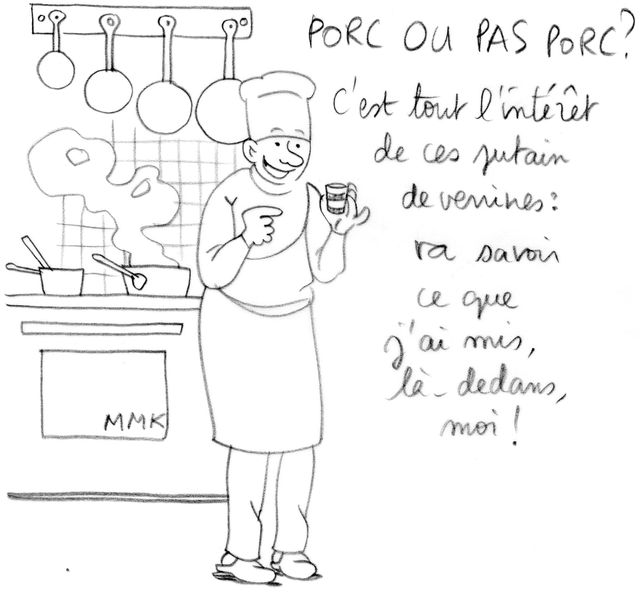 PORC OU PAS PORC?
C'est tout l'intérêt
de ces putain
de verrines:
va savoir
ce que
j'ai mis,
là-dedans,
moi!
MMK